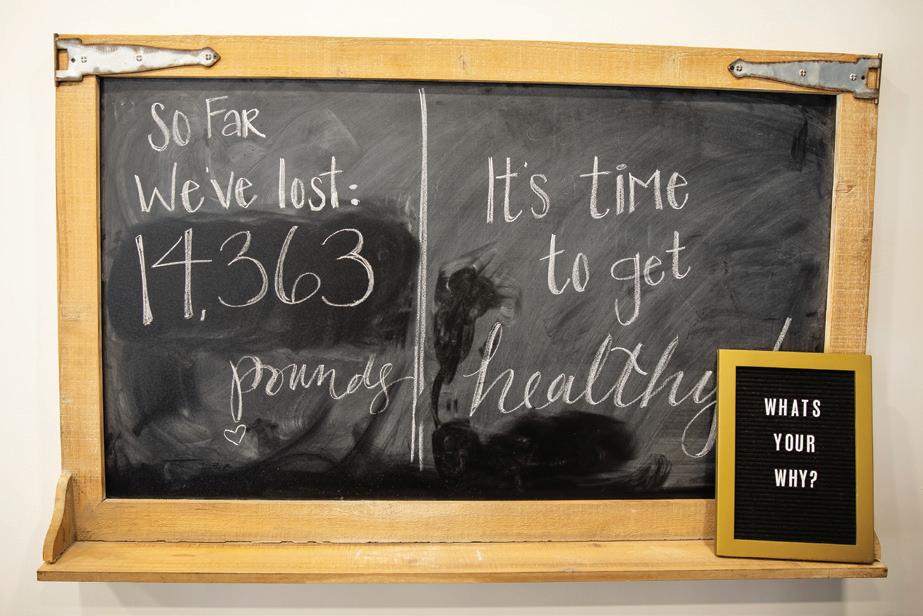 So Far
We've lost:
14,363
pounds
It's time
to get
healthy
WHATS
YOUR
WHY?